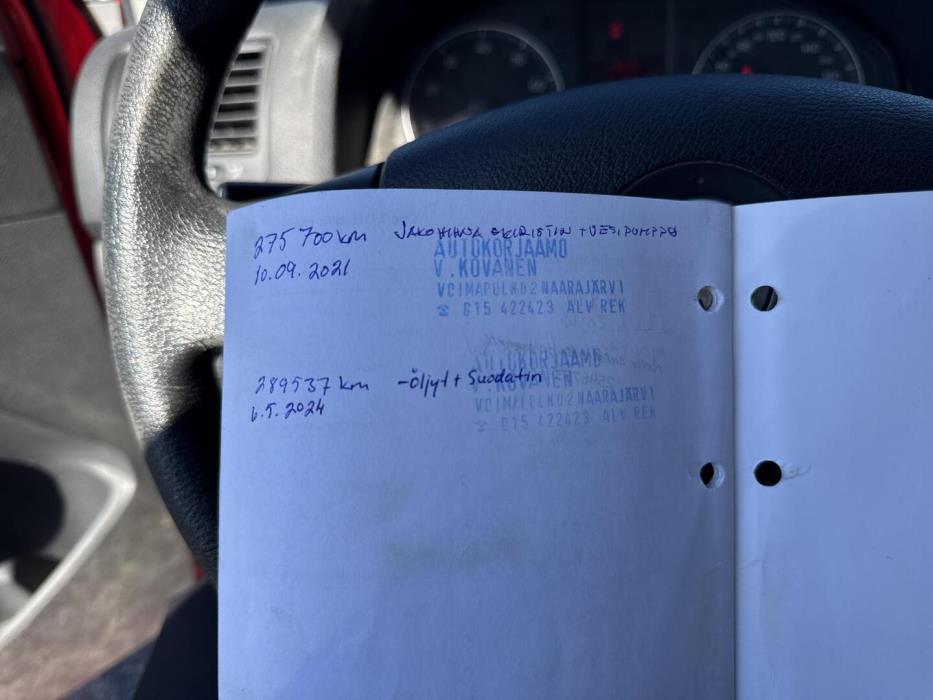 275 700 km JAKOHIHNA KIRISTIN + VESIPUMPPU
10.09.2021
AUTOKORJAAMO
V.KOVANEN
VOIMAPOLKU2NAARAJÄRVI
☎ 015 422423 ALV REK
289537 km -Öljyt + Suodatin
6.5.2024
AUTOKORJAAMO
V.KOVANEN
VOIMAPOLKU2NAARAJÄRVI
☎ 015 422423 ALV REK